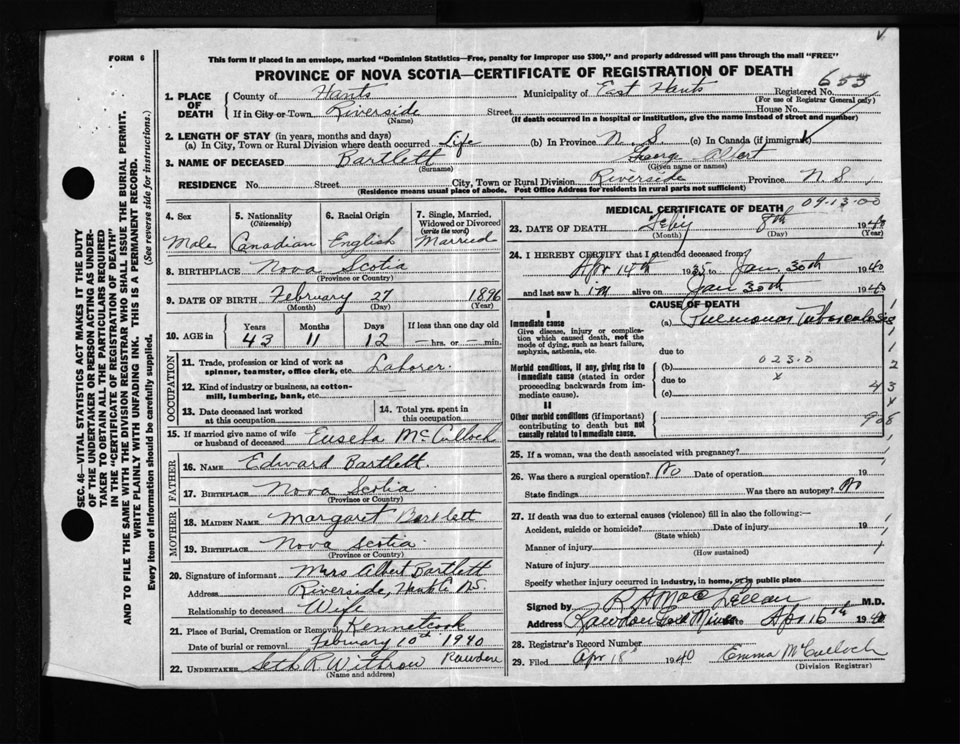 FORM 6
This form if placed in an envelope, marked "Dominion Statistics—Free, penalty for improper use $300," and properly addressed will pass through the mail "FREE"
PROVINCE OF NOVA SCOTIA—CERTIFICATE OF REGISTRATION OF DEATH
SEC. 46—VITAL STATISTICS ACT MAKES IT THE DUTY
OF THE UNDERTAKER OR PERSON ACTING AS UNDER-
TAKER TO OBTAIN ALL THE PARTICULARS REQUIRED
IN THE "CERTIFICATE OF REGISTRATION OF DEATH"
AND TO FILE THE SAME WITH THE DIVISION REGISTRAR WHO SHALL ISSUE THE BURIAL PERMIT.
WRITE PLAINLY WITH UNFADING INK. THIS IS A PERMANENT RECORD.
Every item of information should be carefully supplied. (See reverse side for instructions.)
1. PLACE OF DEATH
County of Hants Municipality of East Hants Registered No. 653
(For use of Registrar General only)
If in City or Town Riverside Street House No.
(Name) (If death occurred in a hospital or institution, give the name instead of street and number)
2. LENGTH OF STAY (in years, months and days)
(a) In City, Town or Rural Division where death occurred Life (b) In Province N. S. (c) In Canada (if immigrant)
3. NAME OF DECEASED Bartlett George Albert
(Surname) (Given name or names)
RESIDENCE No. Street City, Town or Rural Division Riverside Province N. S.
(Residence means usual place of abode. Post Office Address for residents in rural parts not sufficient)
09-13-00
4. Sex 5. Nationality (Citizenship) 6. Racial Origin 7. Single, Married, Widowed or Divorced (write the word)
Male Canadian English Married
8. BIRTHPLACE Nova Scotia
(Province or Country)
9. DATE OF BIRTH February 27 1896
(Month) (Day) (Year)
10. AGE in Years Months Days If less than one day old
43 11 12 hrs. or min.
OCCUPATION
11. Trade, profession or kind of work as spinner, teamster, office clerk, etc. Laborer.
12. Kind of industry or business, as cotton-mill, lumbering, bank, etc.
13. Date deceased last worked at this occupation
14. Total yrs. spent in this occupation
15. If married give name of wife or husband of deceased Euseta McCulloch
FATHER
16. NAME Edward Bartlett.
17. BIRTHPLACE Nova Scotia
(Province or Country)
MOTHER
18. MAIDEN NAME Margaret Bartlett
19. BIRTHPLACE Nova Scotia
(Province or Country)
20. Signature of informant Mrs Albert Bartlett
Address Riverside, Hants Co NS.
Relationship to deceased Wife
21. Place of Burial, Cremation or Removal Kennetcook
Date of burial or removal February 10th 1940
22. UNDERTAKER Seth R Withrow Rawdon
(Name and address)
MEDICAL CERTIFICATE OF DEATH
23. DATE OF DEATH Feby 8th 1940
(Month) (Day) (Year)
24. I HEREBY CERTIFY that I attended deceased from
Apr 14th 1935 to Jan. 30th 1940
and last saw him alive on Jan 30th 1940
CAUSE OF DEATH
I
Immediate cause
Give disease, injury or complication which caused death, not the mode of dying, such as heart failure, asphyxia, asthenia, etc.
(a) Pulmonary Tuberculosis
due to
Morbid conditions, if any, giving rise to immediate cause (stated in order proceeding backwards from immediate cause).
(b) 023.0
due to x
(c)
II
Other morbid conditions (if important) contributing to death but not causally related to immediate cause.
25. If a woman, was the death associated with pregnancy?
26. Was there a surgical operation? No Date of operation 19
State findings Was there an autopsy? No
27. If death was due to external causes (violence) fill in also the following:—
Accident, suicide or homicide? Date of injury 19
(State which)
Manner of injury
(How sustained)
Nature of injury
Specify whether injury occurred in industry, in home, or in public place
Signed by R A MacLellan M.D.
Address Rawdon Gold Mines Date Apr 16th 1940
28. Registrar's Record Number
29. Filed Apr 18 1940 Emma McCulloch
(Division Registrar)